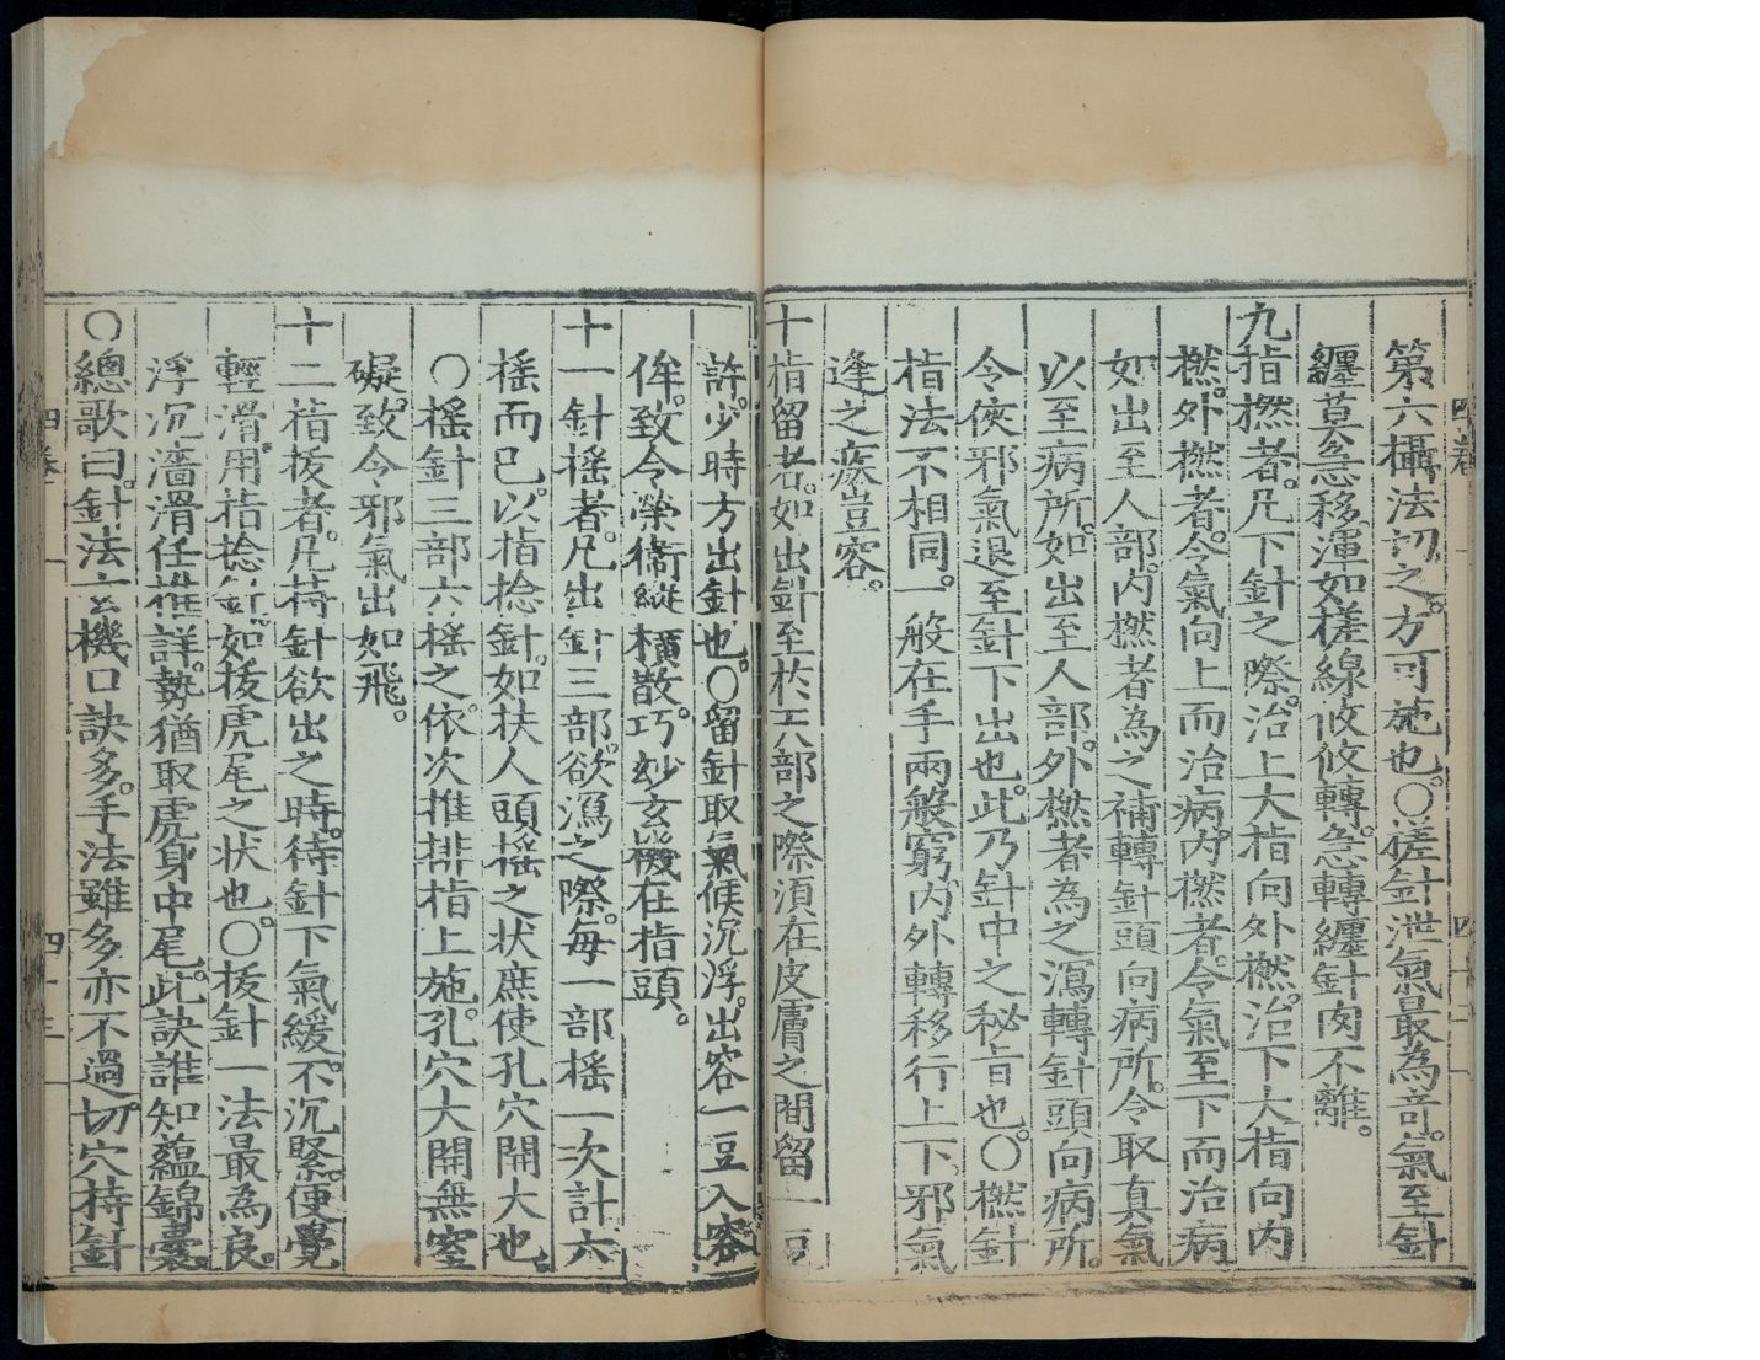 第六攝法切之。方可施也。○搓針泄氣最為竒。氣至針
纏莫急移。渾如搓線攸攸轉。急轉纏針肉不離。
九指撚者。凡下針之際。治上大指向外撚。治下大指向內
撚。外撚者。令氣向上而治病。內撚者。令氣至下而治病
如出至人部。內撚者為之補轉針頭向病所。令取真氣
以至病所。如出至人部。外撚者為之瀉轉針頭向病所。
令俠邪氣退至針下出也。此乃針中之秘旨也。○撚針
指法不相同。一般在手兩般窮。內外轉移行上下。邪氣
逢之疾豈容。
十指留者。如出針至於天部之際須在皮膚之間留一豆
許。少時方出針也。○留針取氣候沉浮。出容一豆入容
侔。致令榮衞縱橫散。巧妙玄機在指頭。
十一針搖者。凡出針三部。欲瀉之際。每一部搖一次計六
搖而已。以指捻針。如扶人頭搖之状庶使孔穴開大也。
○搖針三部六搖之。依次推排指上施。孔穴大開無窒
礙。致令邪氣出如飛。
十二指拔者。凡持針欲出之時。待針下氣緩不沉緊。便覺
輕滑。用指捻針。如拔虎尾之状也。○拔針一法最為良。
浮沉濇滑任推詳。勢猶取虎身中尾。此訣誰知蘊錦囊。
○總歌曰。針法玄機口訣多。手法雖多亦不過。切穴持針